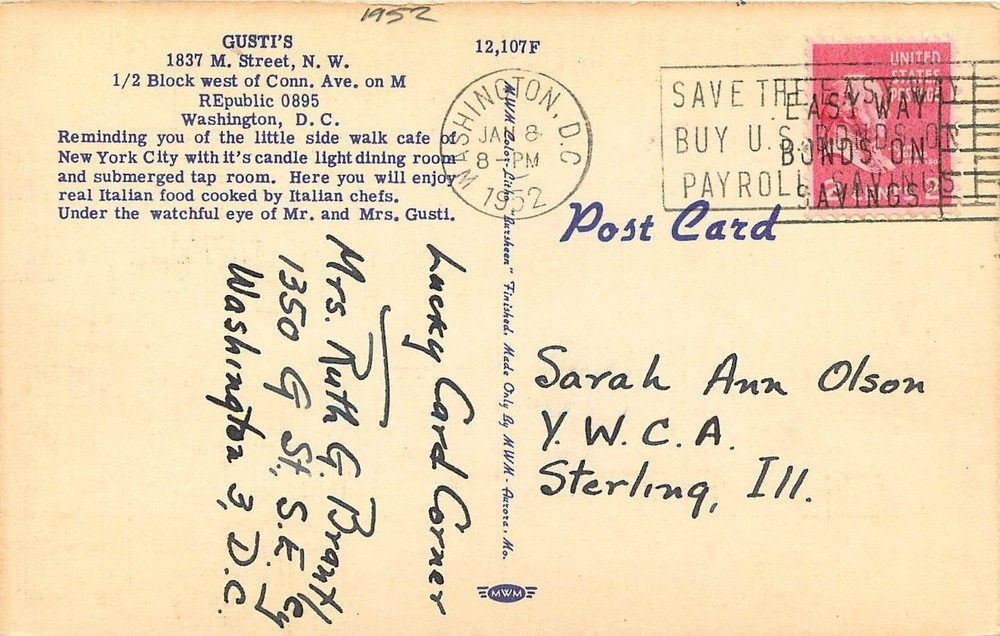 1952
GUSTI'S
1837 M. Street, N. W.
1/2 Block west of Conn. Ave. on M
REpublic 0895
Washington, D. C.
Reminding you of the little side walk cafe of
New York City with it's candle light dining room
and submerged tap room. Here you will enjoy
real Italian food cooked by Italian chefs.
Under the watchful eye of Mr. and Mrs. Gusti.
12,107F
WASHINGTON, D.C.
JAN 8
8 - PM
1952
SAVE THE EASY WAY
BUY U.S. BONDS ON
PAYROLL SAVINGS
EASY WAY
BONDS ON
SAVINGS
UNITED
STATES
POSTAGE
2 CENTS 2
Post Card
MWM Color-Litho "Varsheen" Finished. Made Only By MWM - Aurora, Mo.
Lucky Card Corner
Mrs. Ruth G. Brantley
1350 G St., S.E.
Washington 3, D.C.
Sarah Ann Olson
Y. W. C. A.
Sterling, Ill.
MWM